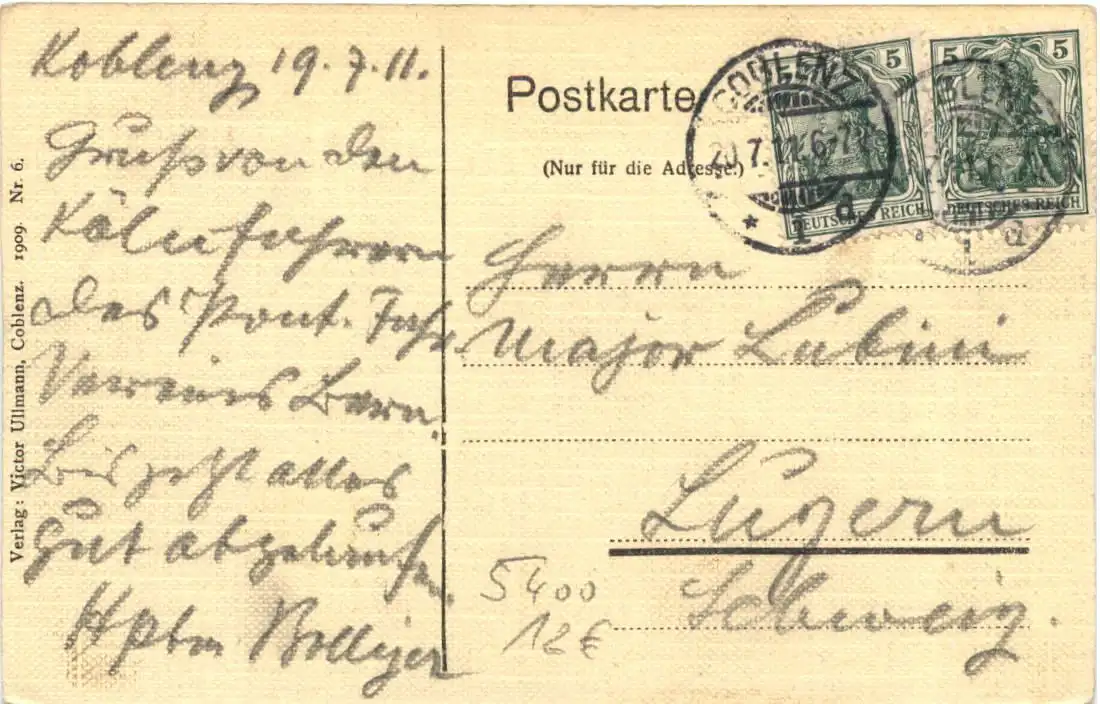 Koblenz, 19.7.11.
Gruß von den
Kölnfahrern
des Pont. Fahr
Vereins Bern.
Bis jetzt alles
gut abgelaufen.
Hptm Bolliger
Verlag: Victor Ullmann, Coblenz. 1909. Nr. 6.
Postkarte
(Nur für die Adresse.)
COBLENZ
20.7.11.6-7
1 d
5
DEUTSCHES REICH
5
DEUTSCHES REICH
Herrn
Major
Luzern
Schweiz.
5400
12€